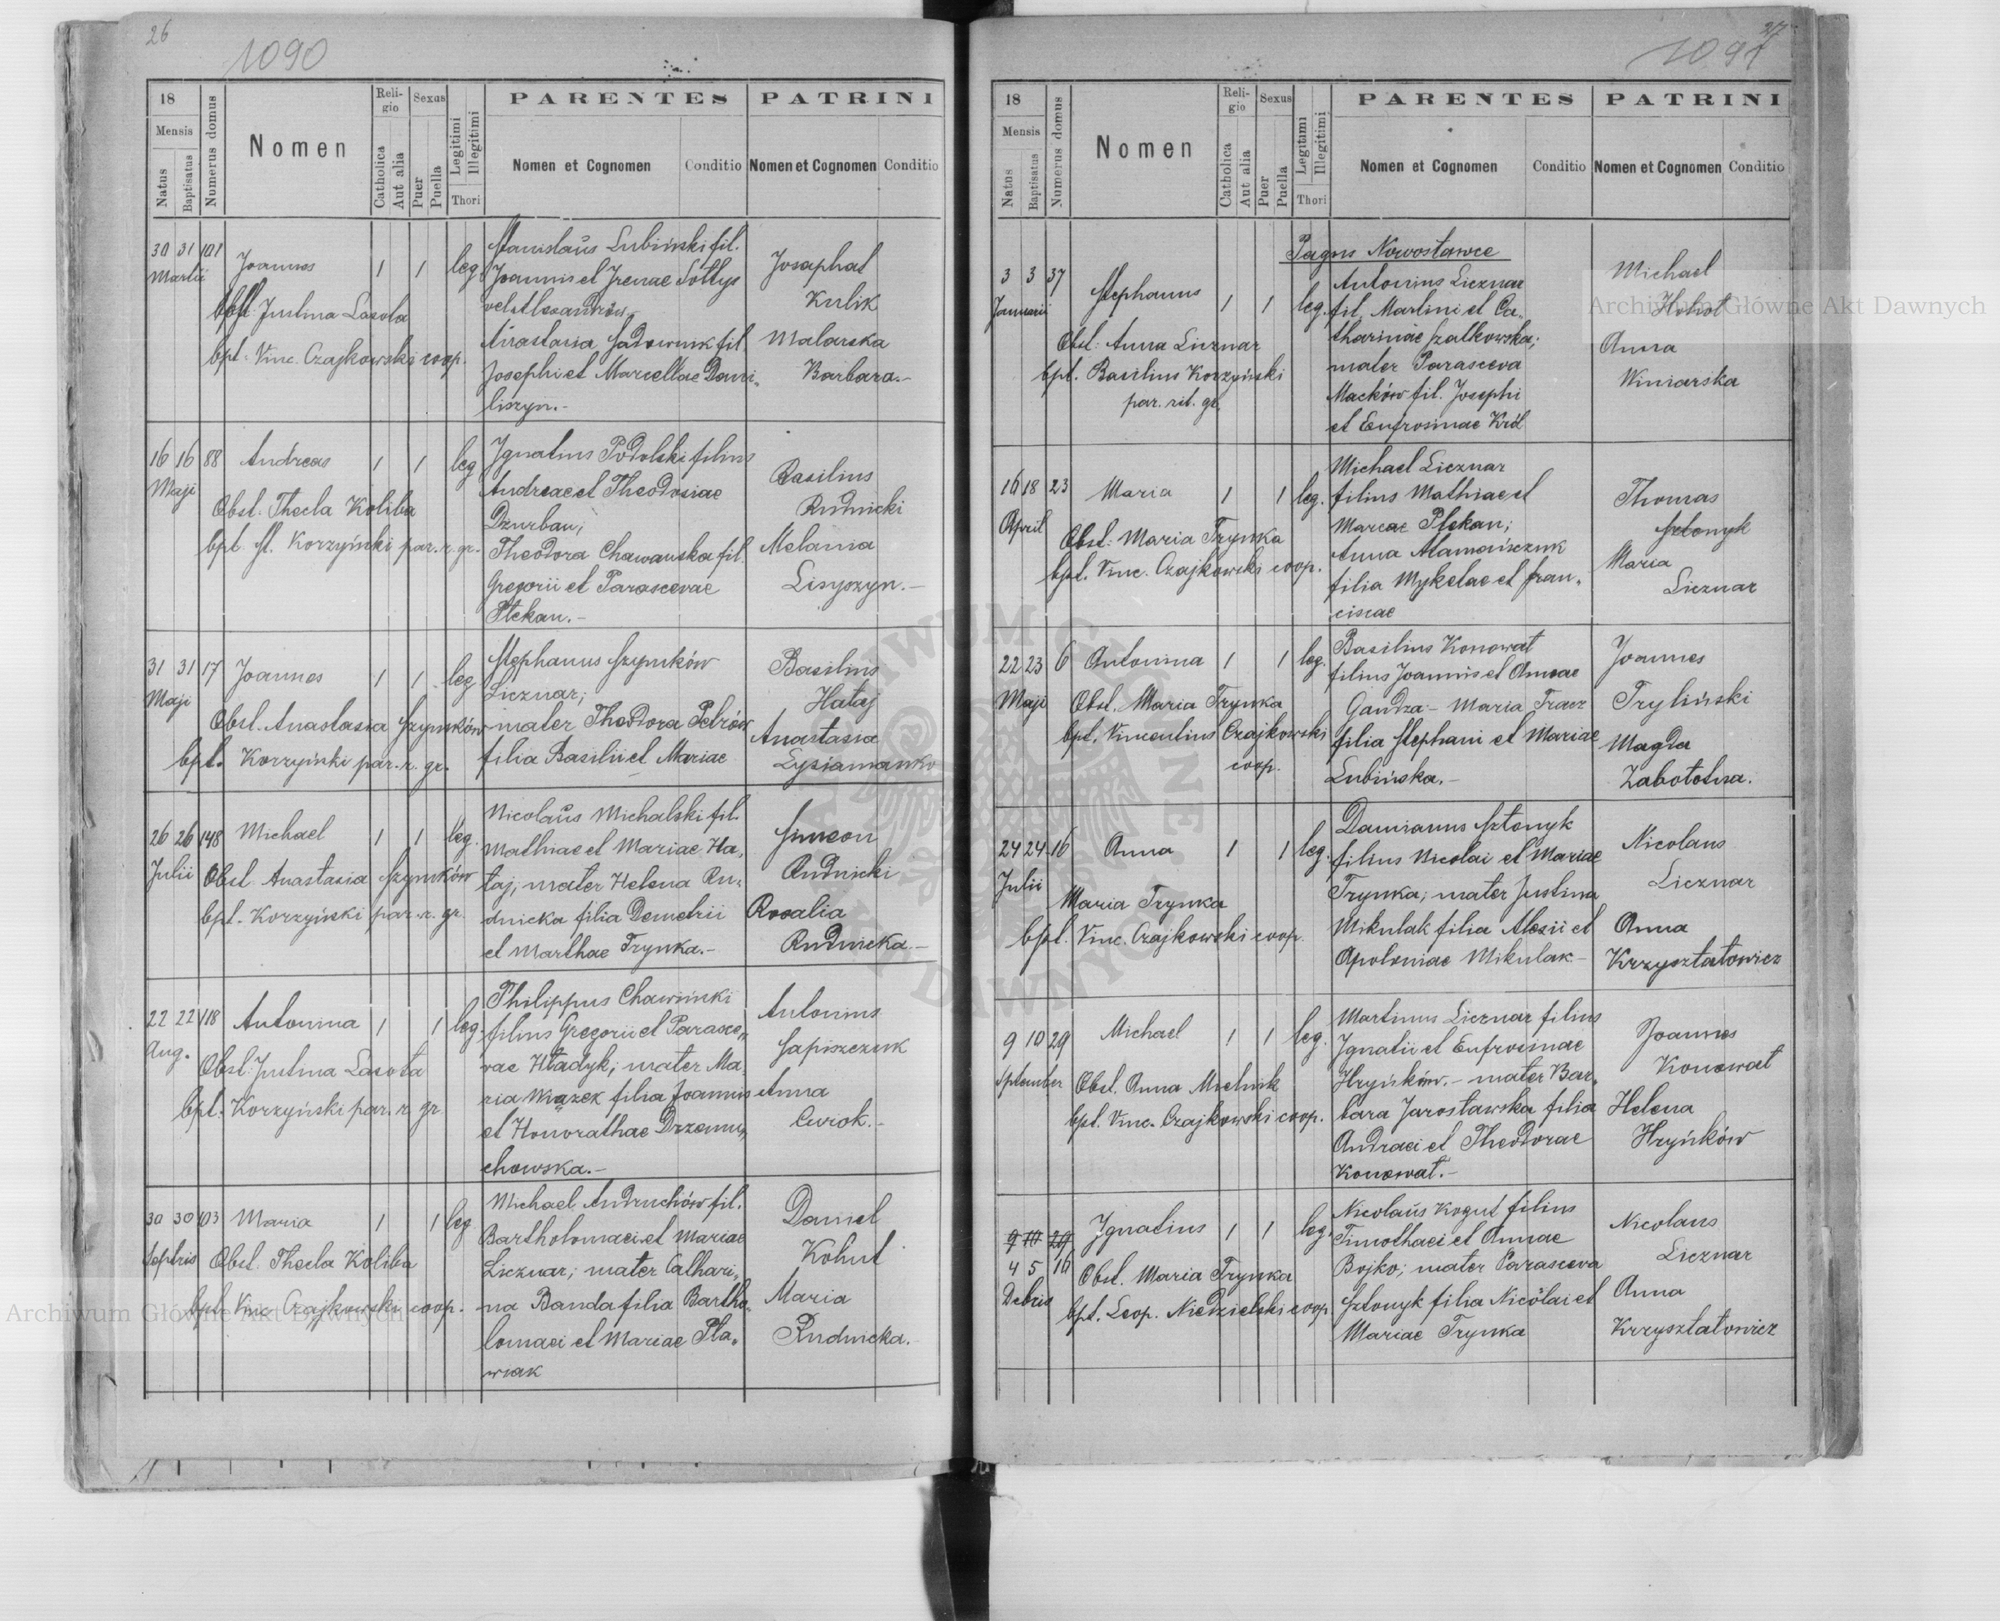 26
1090
18
Mensis
Natus
Baptisatus
Numerus domus
Nomen
Religio
Catholica
Aut alia
Sexus
Puer
Puella
Legitimi
Illegitimi
Thori
PARENTES
Nomen et Cognomen
Conditio
PATRINI
Nomen et Cognomen
Conditio
30 31 101
Martii
Joannes 1 1 leg.
Obst. Justina Lasota
bpt. Vinc. Czajkowski coop.
Stanislaus Lubiński fil.
Joannis et Irenae Sołtys
Anastasia Sadownik fil.
Josephi et Marcellae Dani-
liszyn.-
Josaphat
Kulik
Malarska
Barbara.-
16 16 88
Maji
Andreas 1 1 leg
Obst. Thecla Koliba
bpt. Korzyński par. r. gr.
Ignatius Podolski filius
Andreae et Theodosiae
Dzurban;
Theodora Chawańska fil.
Gregorii et Parascevae
Ptekan.-
Basilius
Rudnicki
Melania
31 31 17
Maji
Joannes 1 1 leg
Obst. Anastasia Szymków
bpt. Korzyński par. r. gr.
Stephanus Szymków
Licznar;
mater Theodora Petrów
filia Basilii et Mariae
Basilius
Hataj
Anastasia
26 26 148
Julii
Michael 1 1 leg.
Obst. Anastasia Szymków
bpt. Korzyński par. r. gr.
Nicolaus Michalski fil.
Mathiae et Mariae Ha-
taj; mater Helena Ru-
dnicka filia Demetrii
et Marthae Trynka.-
Simeon
Rudnicki
Rosalia
Rudnicka.-
22 22 118
Aug.
Antonina 1 1 leg.
Obst. Justina Lasota
bpt. Korzyński par. r. gr.
Philippus Chawiński
filius Gregorii et Parasce-
vae Hładyk; mater Ma-
ria Wiązek filia Joannis
et Honorathae Drzemu-
chowska.-
Antonius
Sapiszczuk
Anna
30 30 103
Septris
Maria 1 1 leg
Obst. Thecla Koliba
bpt. Vinc. Czajkowski coop.
Michael Andruchów fil.
Bartholomaei et Mariae
Licznar; mater Cathari-
na Banda filia Bartho-
lomaei et Mariae Pła-
wiak
Daniel
Kohut
Maria
Rudnicka.
27
1091
18
Mensis
Natus
Baptisatus
Numerus domus
Nomen
Religio
Catholica
Aut alia
Sexus
Puer
Puella
Legitimi
Illegitimi
Thori
PARENTES
Nomen et Cognomen
Conditio
PATRINI
Nomen et Cognomen
Conditio
Pagus Nowostawce
3 3 37
Januarii
Stephanus 1 1 leg.
Obst. Anna Licznar
bpt. Basilius Korzyński
par. rit. gr.
Antonius Licznar
fil. Martini et Ca-
tharinae Szatkowska;
mater Parasceva
Macków fil. Josephi
et Eufrosinae Król
Michael
Hohot
Anna
Winiarska
16 18 23
April
Maria 1 1 leg.
Obst. Maria Trynka
bpt. Vinc. Czajkowski coop.
Michael Licznar
filius Mathiae et
Mariae Ptekan;
Anna Atamańczuk
filia Mykelae et Fran-
ciscae
Thomas
Sztonyk
Maria
Licznar
22 23 6
Maji
Antonina 1 1 leg.
Obst. Maria Trynka
bpt. Vincentius Czajkowski
coop.
Basilius Konowat
filius Joannis et Annae
Gandza - Maria Tracz
filia Stephani et Mariae
Lubińska.-
Joannes
Tryliński
Magda
Zabototna.
24 24 16
Julii
Anna 1 1 leg.
Maria Trynka
bpt. Vinc. Czajkowski coop.
Damianus Sztonyk
filius Nicolai et Mariae
Trynka; mater Justina
Mikulak filia Alexii et
Apoloniae Mikulak-
Nicolaus
Licznar
Anna
Krzysztatowicz
9 10 29
September
Michael 1 1 leg.
Obst. Anna Mielnik
bpt. Vinc. Czajkowski coop.
Martinus Licznar filius
Ignatii et Eufrosinae
Hryńków.- mater Bar-
bara Jarosławska filia
Andraei et Theodorae
Konowat.-
Joannes
Konowat
Helena
Hryńków
9 10 29
4 5 16
Debris
Ignatius 1 1 leg.
Obst. Maria Trynka
bpt. Leop. Niedzielski coop.
Nicolaus Kogut filius
Timothaei et Annae
Bojko; mater Parasceva
Sztonyk filia Nicolai et
Mariae Trynka
Nicolaus
Licznar
Anna
Krzysztatowicz
Archiwum Główne Akt Dawnych
Archiwum Główne Akt Dawnych
ARCHIWUM GŁÓWNE AKT DAWNYCH